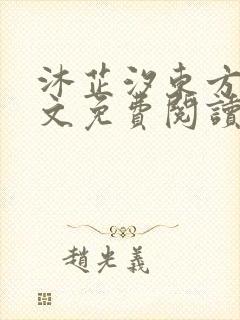 沐芷汐東方
文免費閱讀
趙光義